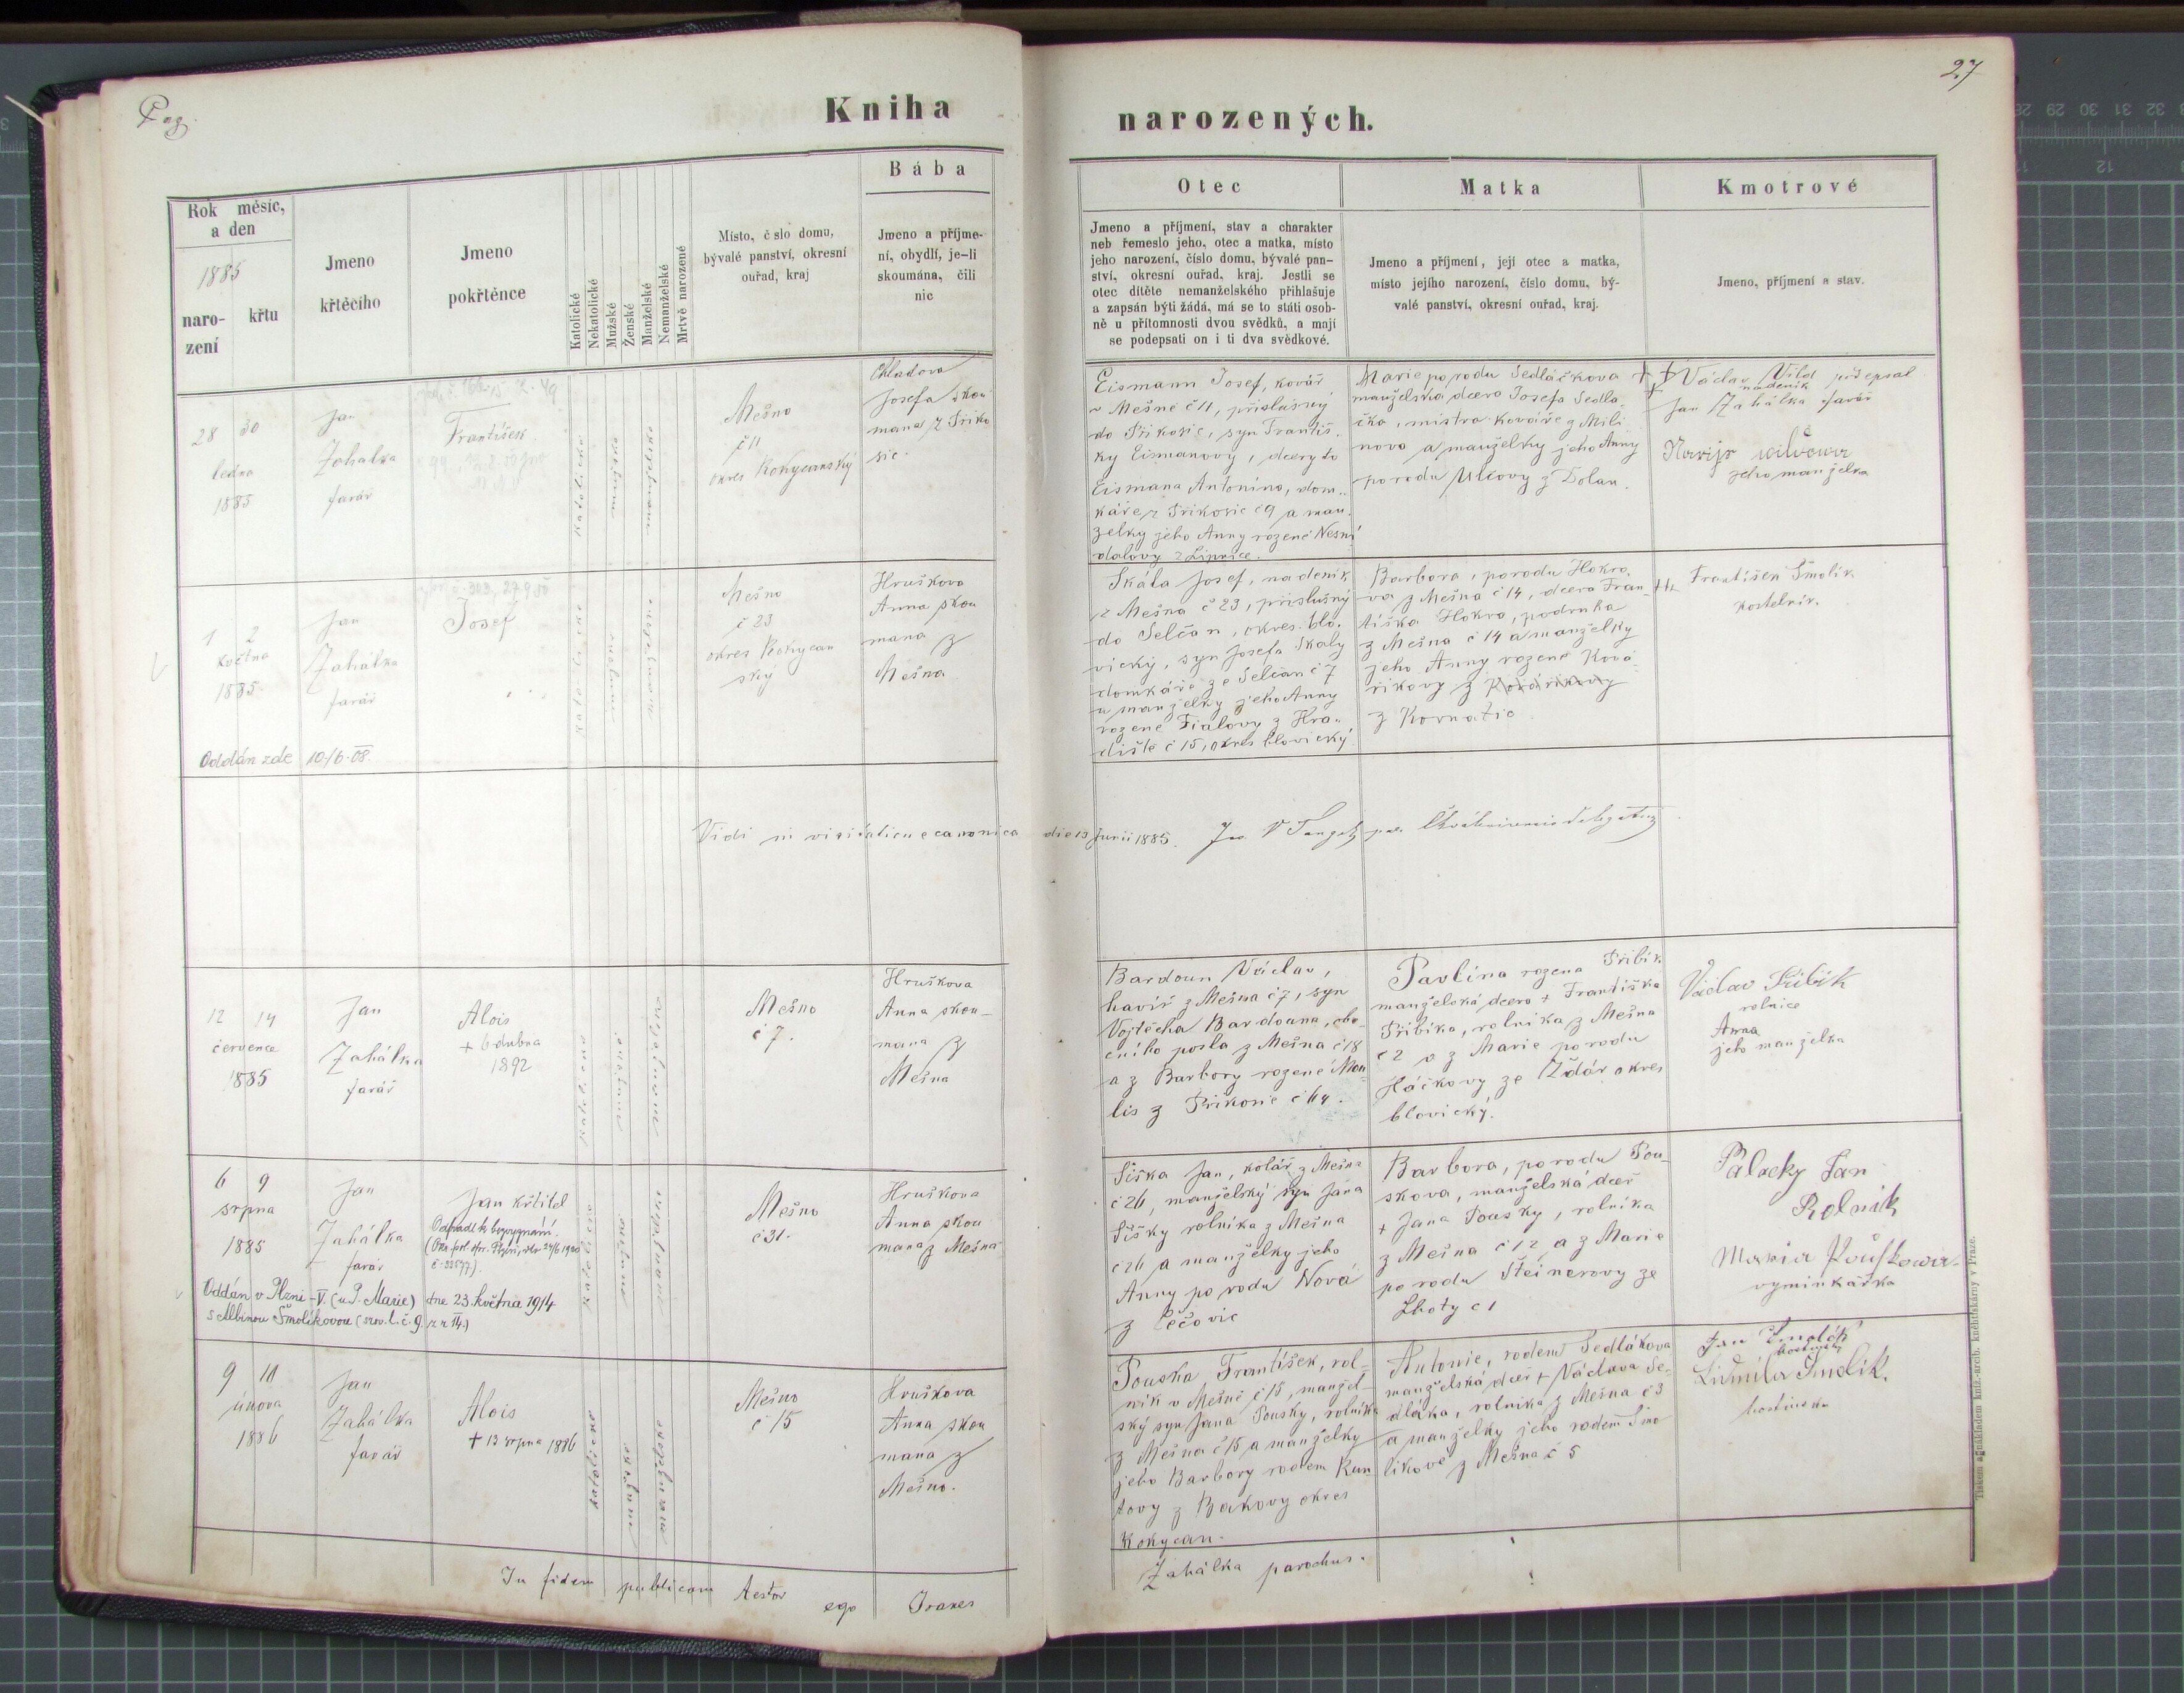 Pag.
27
Kniha
narozených.
Rok měsíc,
a den
1885
naro-
zení
křtu
Jmeno
křtěcího
Jmeno
pokřtěnce
Katolické
Nekatolické
Mužské
Ženské
Manželské
Nemanželské
Mrtvě narozené
Místo, č slo domu,
bývalé panství, okresní
ouřad, kraj
Bába
Jmeno a příjme-
ní, obydlí, je-li
skoumána, čili
nic
Otec
Jmeno a příjmení, stav a charakter
neb řemeslo jeho, otec a matka, místo
jeho narození, číslo domu, bývalé pan-
ství, okresní ouřad, kraj. Jestli se
otec dítěte nemanželského přihlašuje
a zapsán býti žádá, má se to státi osob-
ně u přítomnosti dvou svědků, a mají
se podepsati on i ti dva svědkové.
Matka
Jmeno a příjmení, její otec a matka,
místo jejího narození, číslo domu, bý-
valé panství, okresní ouřad, kraj.
Kmotrové
Jmeno, příjmení a stav.
28 30
ledna
1885
Jan
Zahálka
farář
František
katolické
mužské
manželské
Mešno
č 11
okres Rokycanský
Chladova
Josefa skou
mana z Příko
sic.
Eismann Josef, kovář
v Mešně č 11, příslušný
do Příkosic, syn Františ
ky Eismanovy, dcery do
Eismana Antonína, dom-
káře z Příkosic č 9 a man
želky jeho Anny rozené Nesní
dalovy z Lipnice.
Marie porodu Sedláčkova
manželská dcera Josefa Sedlá
čka, mistra kováře z Mili
nova a manželky jeho Anny
porodu Ulčovy z Dolan.
Václav Vild
nádeník
přepsal
Jan Zahálka farář
jeho manželka
1 2
května
1885
Jan
Zahálka
farář
Josef
Oddán zde 10/6·08.
Mešno
č 23
okres Rokycan
ský
Hruškova
Anna skou
mana z
Mešna
Skála Josef, nadeník
z Mešna č 23, příslušný
do Selčan, okres blo-
vický, syn Josefa Skaly
domkáře ze Selčan č 7
a manželky jeho Anny
rozené Fialovy z Hra-
diště č 15, okres blovický
Barbora, porodu Hokro
va z Mešna č 14, dcera Fran-
tiška Hokra, podruha
z Mešna č 14 a manželky
jeho Anny rozené Ková
říkovy z Kovaříkovy
z Kornatic.
František Smolík
kostelník.
Vidi in visitatione canonica die 13 Junii 1885.
12 14
července
1885
Jan
Zahálka
farář
Alois
+ 6 dubna
1892
Mešno
č 7.
Hruškova
Anna skou-
mana z
Mešna
Bardoun Václav,
havíř z Mešna č 7, syn
Vojtěcha Bardouna, obe-
cního posla z Mešna č 18
a z Barbory rozené Mou-
lis z Příkosic č 64.
Pavlína rozena Přibík
manželská dcera + Františka
Přibíka, rolníka z Mešna
č 2 a z Marie porodu
Háčkovy ze Ždár okres
blovický.
Václav Přibík
rolnice
Anna
jeho manželka
6 9
srpna
1885
Jan
Zahálka
farář
Jan křtitel
Odpadl k bezvyznání.
Oddán v Plzni - V. (u P. Marie) dne 23. května 1914
s Albinou Smolíkovou (srov. l. č. 9. z r 14.)
Mešno
č 31.
Hruškova
Anna skou
mana z Mešna
Šiška Jan, kolář z Mešna
č 26, manželský syn Jana
Šišky rolníka z Mešna
č 26 a manželky jeho
Anny po rodu Nová
z Čečovic
Barbora, porodu Pou-
skova, manželská dceř
+ Jana Pousky, rolníka
z Mešna č 12 a z Marie
po rodu Šteinerovy ze
Lhoty č 1
Palacky Jan
Rolník
Maria Pouskowa
vyminkářka
9 10
února
1886
Jan
Zahálka
farář
Alois
+ 13 srpna 1886
katolické
mužské
manželské
Mešno
č 15
Hruškova
Anna skou
mana z
Mešno.
Pouska František, rol-
ník v Mešně č 15, manžel-
ský syn Jana Pousky, rolníka
z Mešna č 15 a manželky
jeho Barbory rodem Kun
tovy z Bukovy okres
Rokycan.
Antonie, rodem Sedlákova
manželská dceř + Václava Se-
dláka, rolníka z Mešna č 3
a manželky jeho rodem Smo
líkové z Mešna č 5
Jan Smolík
Ludmila Smolík.
hostinska
In fidem publicam testor ego Joanes
Zahálka parochus.